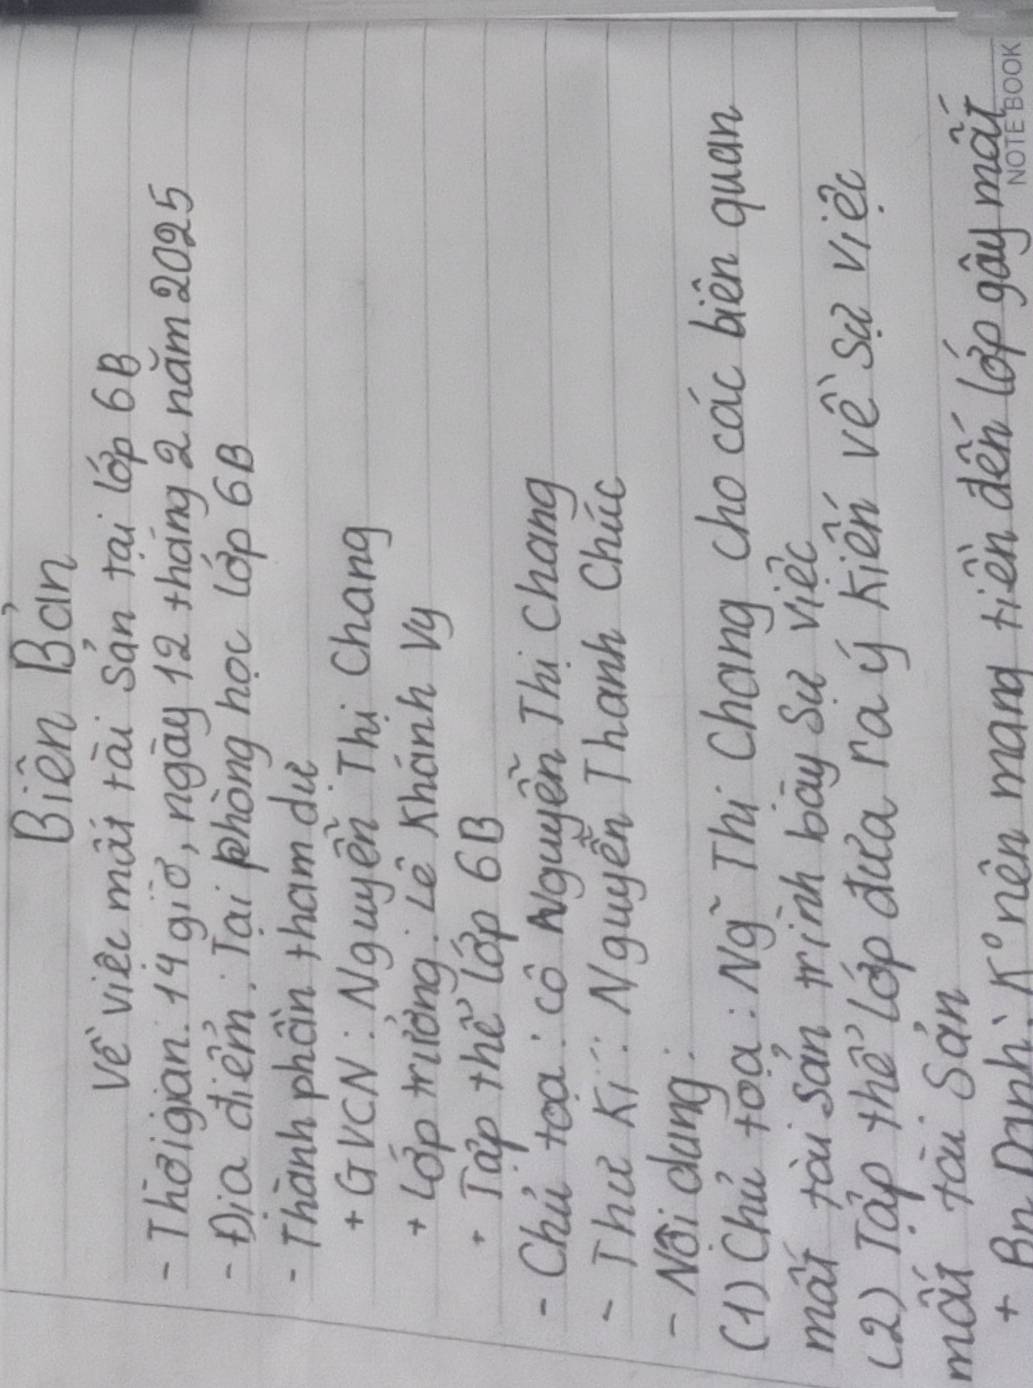 Biên Bản
Về việc mất tài sản tại lớp 6B
- Thời gian: 14 giờ, ngày 12 tháng 2 năm 2025
- Địa điểm: Tại phòng học lớp 6B
- Thành phần tham dự
+ GVCN: Nguyễn Thị Chang
+ Lớp trưởng: Lê Khánh Vy
+ Tập thể lớp 6B
- Chủ tọa: cô Nguyễn Thị Chang
- Thư kí: Nguyễn Thanh Chúc
- Nội dung:
(1) Chủ tọa: Ng~ Thị Chang cho các biên quan
mất tài sản trình bày sự việc
(2) Tập thể lớp đưa ra ý kiến về sự việc
mất tài sản
+ Bn Danh: K° nên mang tiền đến lớp gây mất
NOTE BOOK